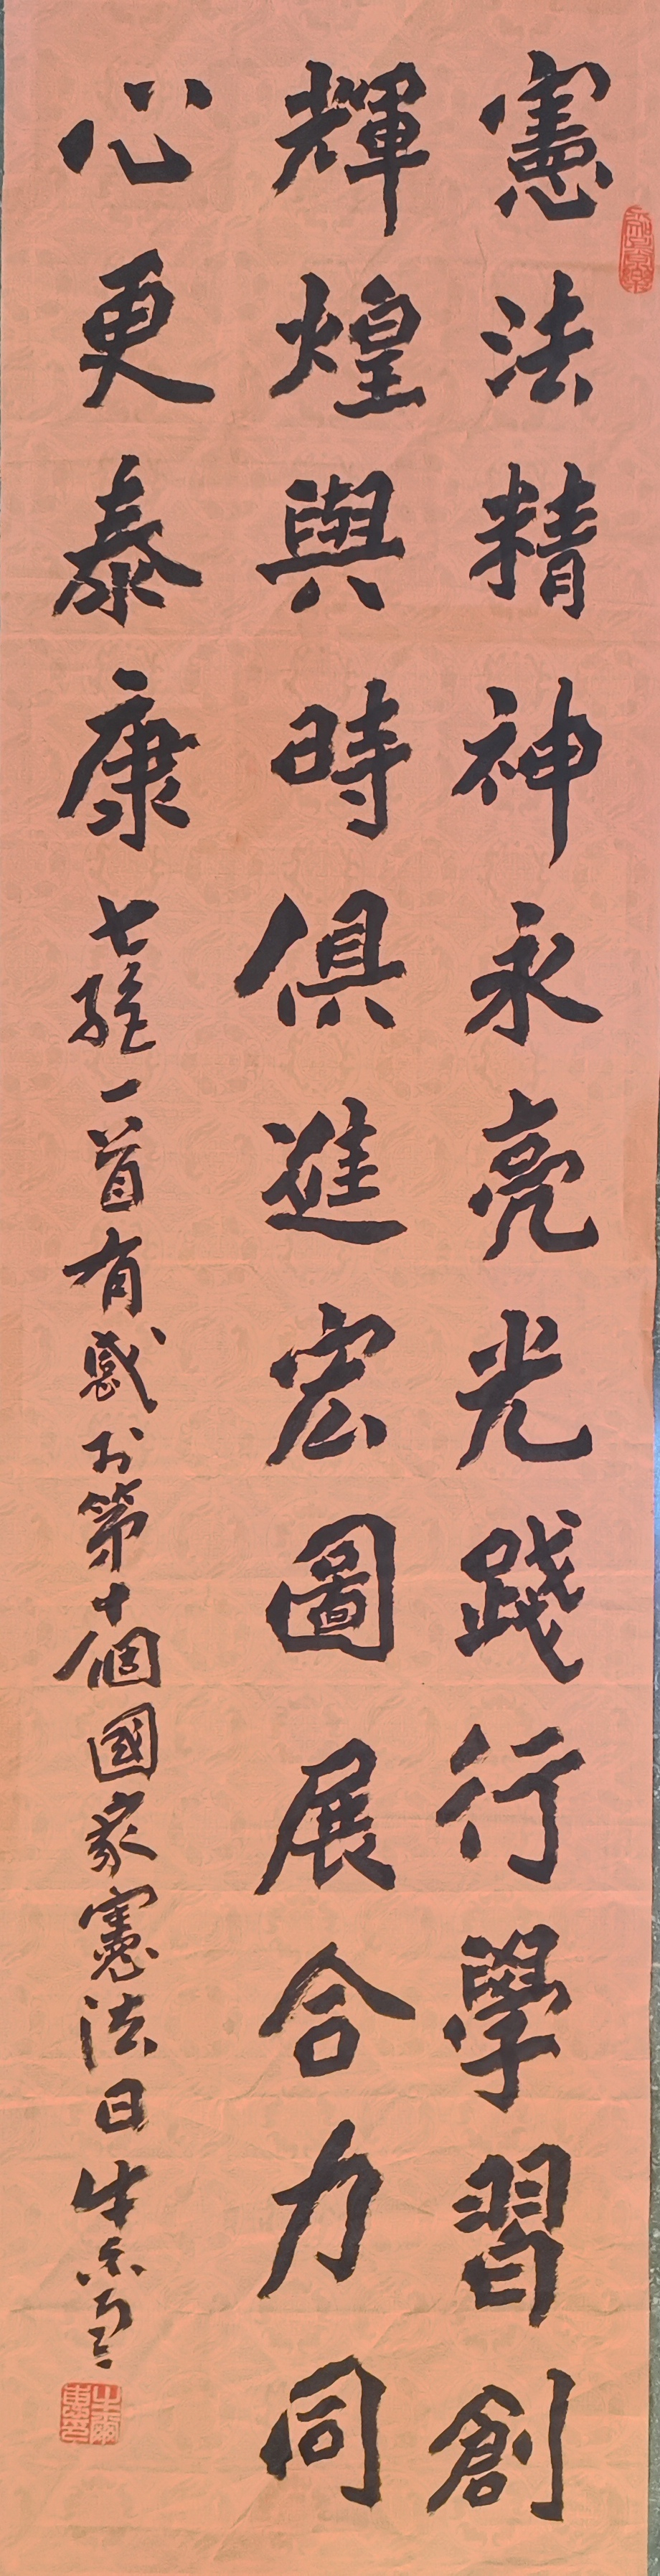 憲法精神永亮光踐行學習創
輝煌與時俱進宏圖展合力同
心更泰康七絕一首有感於第十個國家憲法日牛